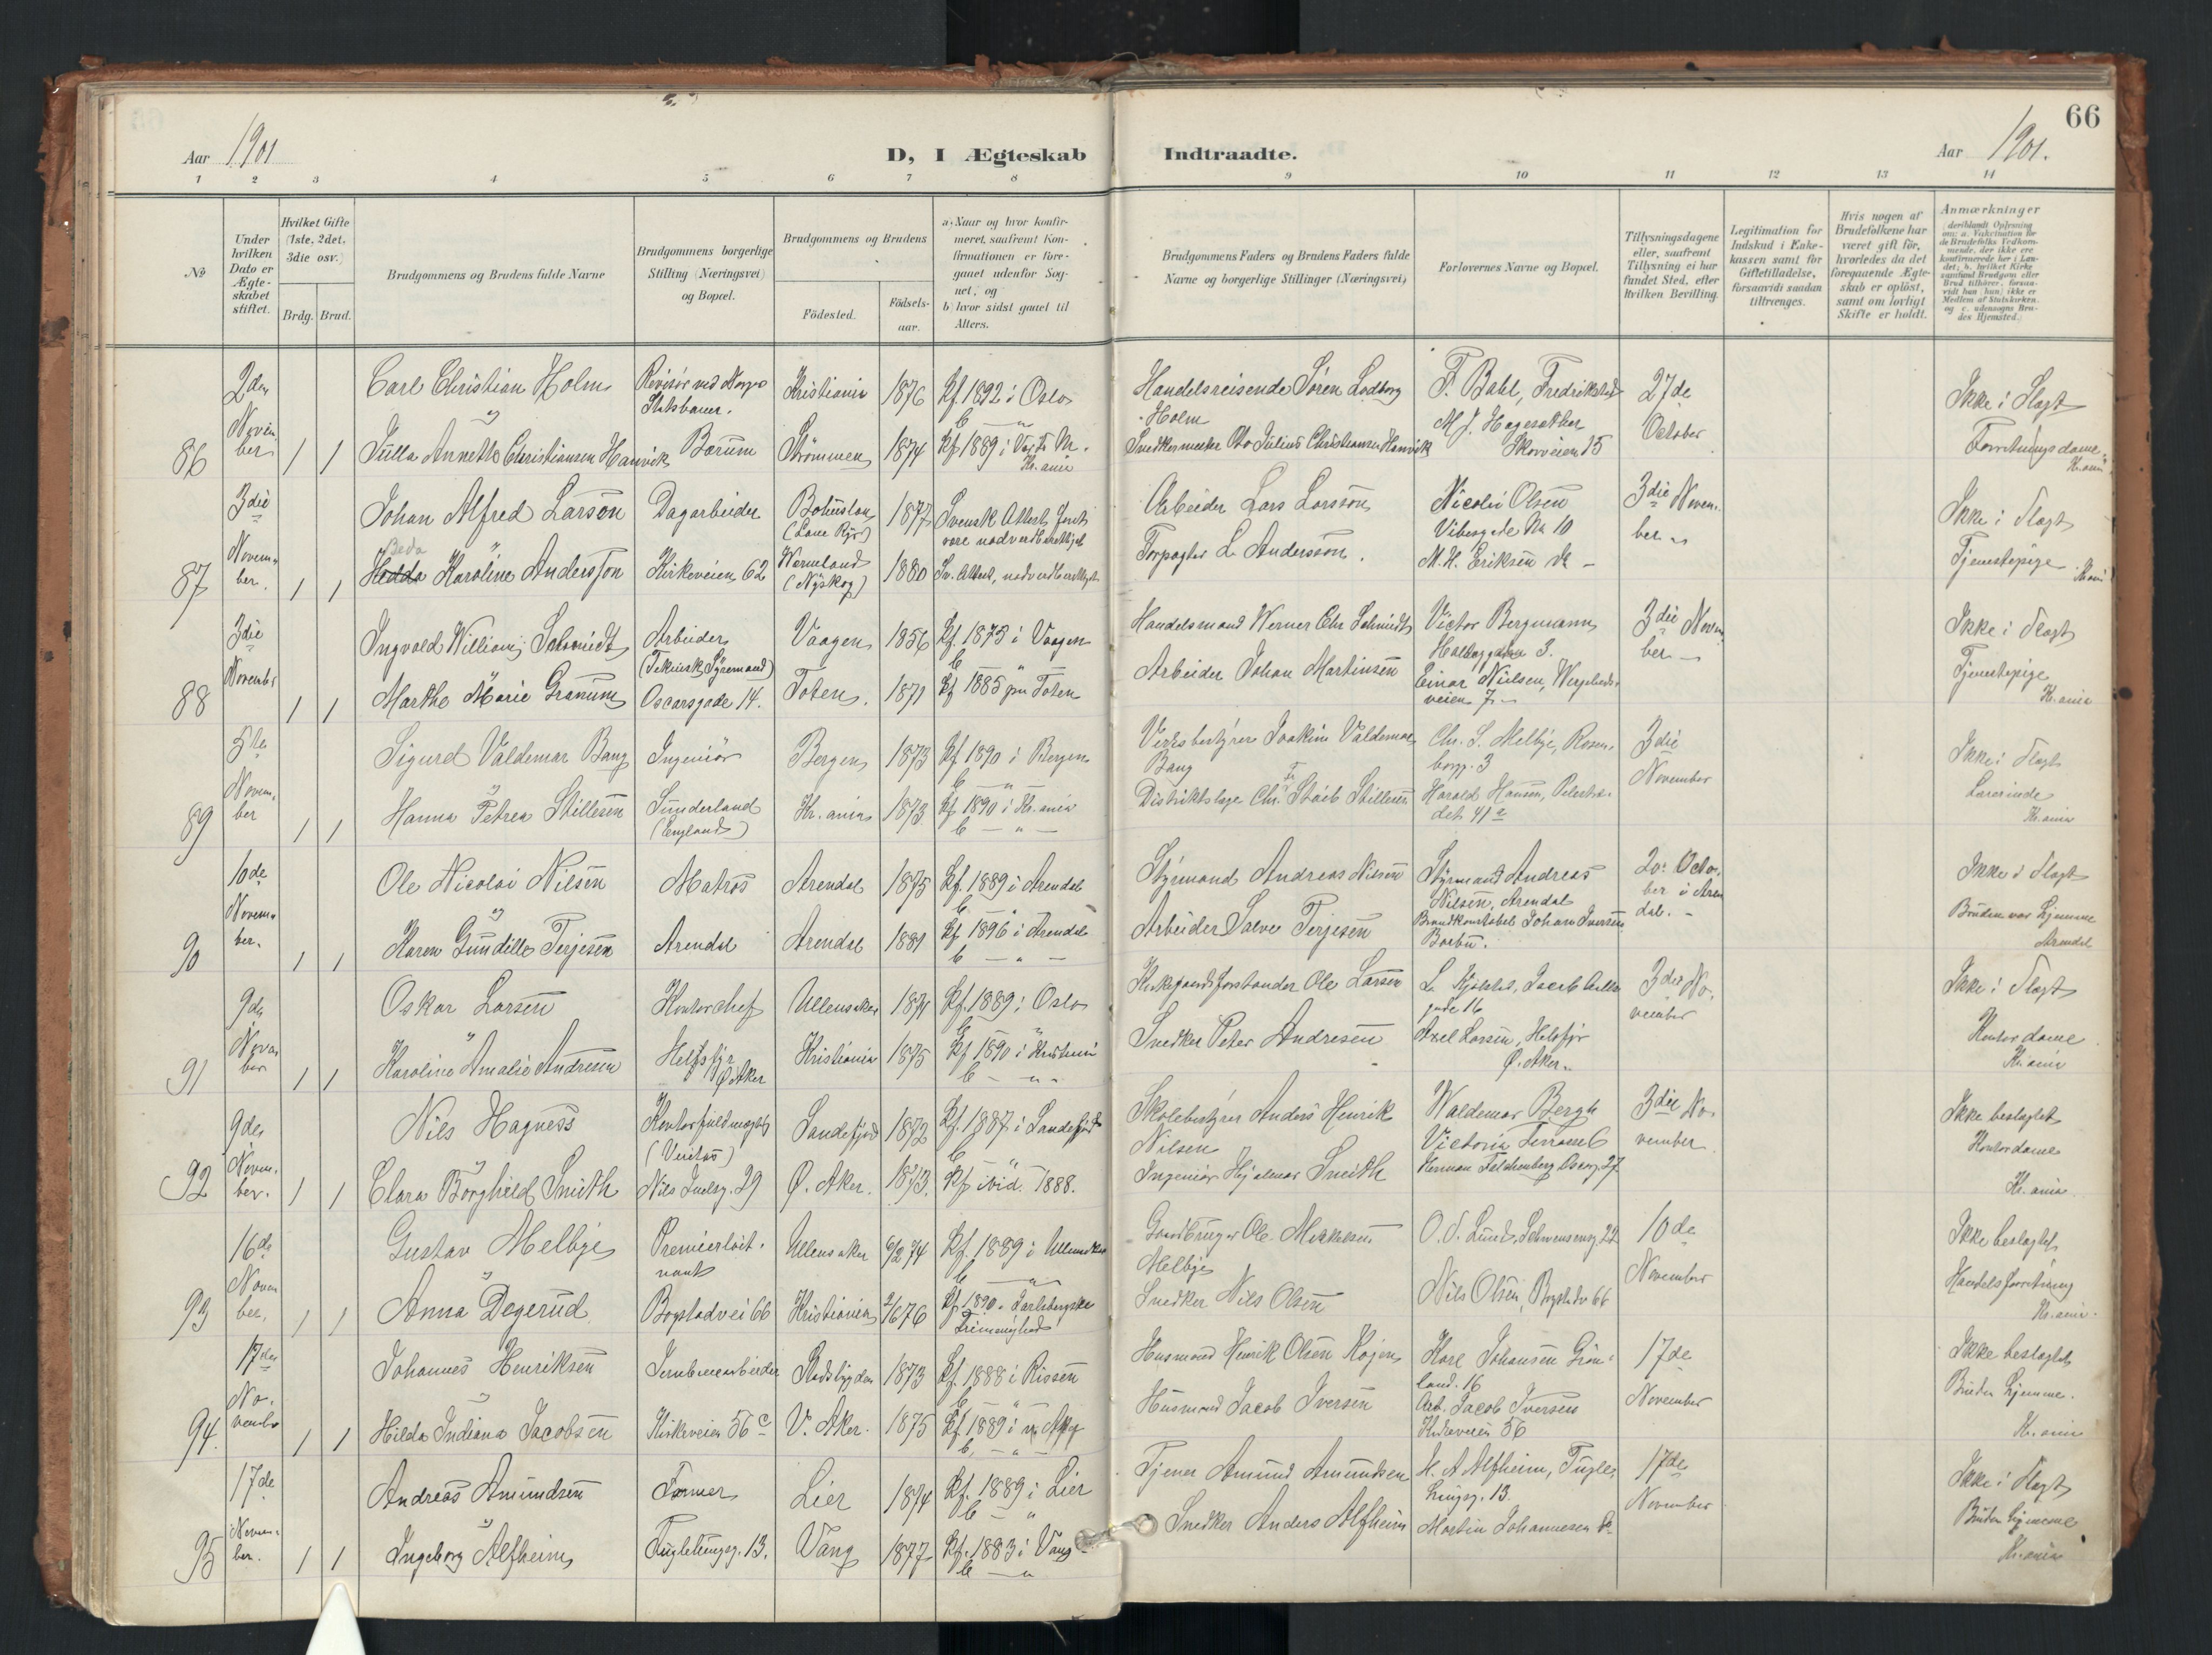 66
Aar 1901
D, I Ægteskab Indtraadte.
Aar 1901.
1 2 3 4 5 6 7 8 9 10 11 12 13 14
No
Under hvilken Dato er Ægteskabet stiftet.
Hvilket Gifte (1ste, 2det, 3die osv.)
Brdg. Brud.
Brudgommens og Brudens fulde Navne
Brudgommens borgerlige Stilling (Næringsvei) og Bopæl.
Brudgommens og Brudens
Födested.
Födselsaar.
a) Naar og hvor konfirmeret, saafremt Konfirmationen er foregaaet udenfor Sognet, og
b) hvor sidst gaaet til Alters.
Brudgommens Faders og Brudens Faders fulde Navne og borgerlige Stillinger (Næringsvei)
Forlovernes Navne og Bopæl.
Tillysningsdagene eller, saafremt Tillysning ei har fundet Sted, efter hvilken Bevilling.
Legitimation for Indskud i Enkekassen samt for Giftetilladelse, forsaavidt saadan tiltrænges.
Hvis nogen af Brudefolkene har været gift för, hvorledes da det foregaaende Ægteskab er oplöst, samt om lovligt Skifte er holdt.
Anmærkninger
86 2den Novinber 1 1
Carl Christian Holm Revisor ved Norges Statsbaner. Kristiania 1876 Kf 1892 i Oslo
Handelsreisende Sören Ledborg Holm F. Bahl, Fredrikstad 27de October Ikke i Slægt
Julla Annette Christiansen Hanvik Bærum Strömmen 1874 Kf 1889 i
Snedkermester Otto Julius Christiansen Hanvik M. J. Hagesæther Skovveien 15 Forretningsdame Kr.ania
87 3die November. 1 1
Johan Alfred Larsön Dagarbeider Bohuslen 1877 Svensk Attest
Arbeider Lars Larsson Nicolai Olsen Vibesgade No 10 3die November Ikke i Slægt
Hedda Beda Karoline Andersson Kirkeveien 62 Wermland (Nyskog) 1880 Sv. Attest, nadverdberettiget
Torpagter L Andersson. N. H. Eriksen Tjenestepige Kr.ania
88 3die November 1 1
Ingvald William Schmidt Arbeider Vaagen 1856 Kf. 1873 i Vaagen
Handelsmand Werner Chr Schmidt Victor Bergmann 3. 3die November Ikke i Slægt
Marthe Marie Granum Oscarsgade 14. Toten. 1871 Kf 1885 Toten
Arbeider Johan Martinsen Einar Nielsen, Wergelandsveien 7 Tjenestepige Kr.ania
89 5te November 1 1
Sigurd Valdemar Bang Ingeniör Bergen 1873 Kf 1890 i Bergen
Verksbestyrer Joakim Valdemar Bang Chr. S. Melbye, Rosenborgg. 3 3die November Ikke i Slægt
Hanna Petrea Stillesen Sunderland (England) Kr.ania 1873 Kf 1890 i Kr.ania
Distriktslæge Chr. Fr. Stillesen Harald Hansen, Pilestrædet 41a Lærerinde Kr.ania
90 10de November. 1 1
Ole Nicolai Nilsen Matros Arendal 1875 Kf. 1889 i Arendal
Styrmand Andreas Nilsen Styrmand Andreas Nilsen, Arendal 20. October i Arendal. Ikke i Slægt
Karen Gundille Terjesen Arendal Arendal 1881 Kf 1896 i Arendal
Arbeider Salve Terjesen Brandkonstabel Johan Iversen Barbu. Bruden var hjemme Arendal
91 9de November 1 1
Oskar Larsen Kontorchef Ullensaker 1874 Kf. 1889 i Oslo
Kirkegaardsforstander Ole Larsen gade 16 3die November Ikke i Slægt
Karoline Amalie Andresen Helsfyr Ö Aker Kristiania 1875 Kf 1890 i Kristiania
Snedker Peter Andresen Axel Larsen, Helsfyr Ø. Aker. Kontordame Kr.ania
92 9de November. 1 1
Nils Hagness Kontorfuldmægtig (Veritas) Sandefjord 1872 Kf. 1887. i Sandefjord
Skolebestyrer Anders Henrik Nilsen Waldemar Bergh Victoria Terrasse 6 3die November Ikke beslægtet
Clara Borghild Smith Nils Juelsg. 29 Ø. Aker. 1873. Kf ibid. 1888.
Ingeniör Hjalmar Smith Herman Falchenberg Oscarsg. 27 Kontordame Kr.ania
93 16de November, 1 1
Gustav Melbye Premierlöitnant Ullensaker 6/2 74 Kf. 1889 i Ullensaker
Gaardbruger Ole Mikkelsen Melbye O. S. Lund, Schwensensg. 22 10de November Ikke beslægtet
Anna Degerud Bogstadvei 66 Kristiania 2/6 76 Kf 1890. Jarlsbergske Frimenighed
Snedker Nils Olsen Nils Olsen, Bogstadv 66 Handelsforretning Kr.ania.
94. 17de November 1 1
Johannes Henriksen Jernbanearbeider Stadsbygden 1873 Kf. 1888 i Rissen
Husmand Henrik Olsen Kojen Karl Johansen Grönland. 16 17de November Ikke beslægtet
Hilda Indiana Jacobsen Kirkeveien 56c V. Aker. 1875 Kf. 1889 i v. Aker
Husmand Jacob Iversen Arb. Jacob Iversen Kirkeveien 56 Bruden hjemme. Kr.ania
95 17de November. 1 1
Andreas Amundsen Former Lier 1874 Kf. 1889 i Lier
Tjener Amund Amundsen M. A Alfheim, Fuglehaugg. 13. 17de November Ikke i Slægt
Ingeborg Alfheim Fuglehaugg. 13. Vang 1877 Kf. 1883 i Vang
Snedker Anders Alfheim Martin Johannesen Bruden hjemme Kr.ania